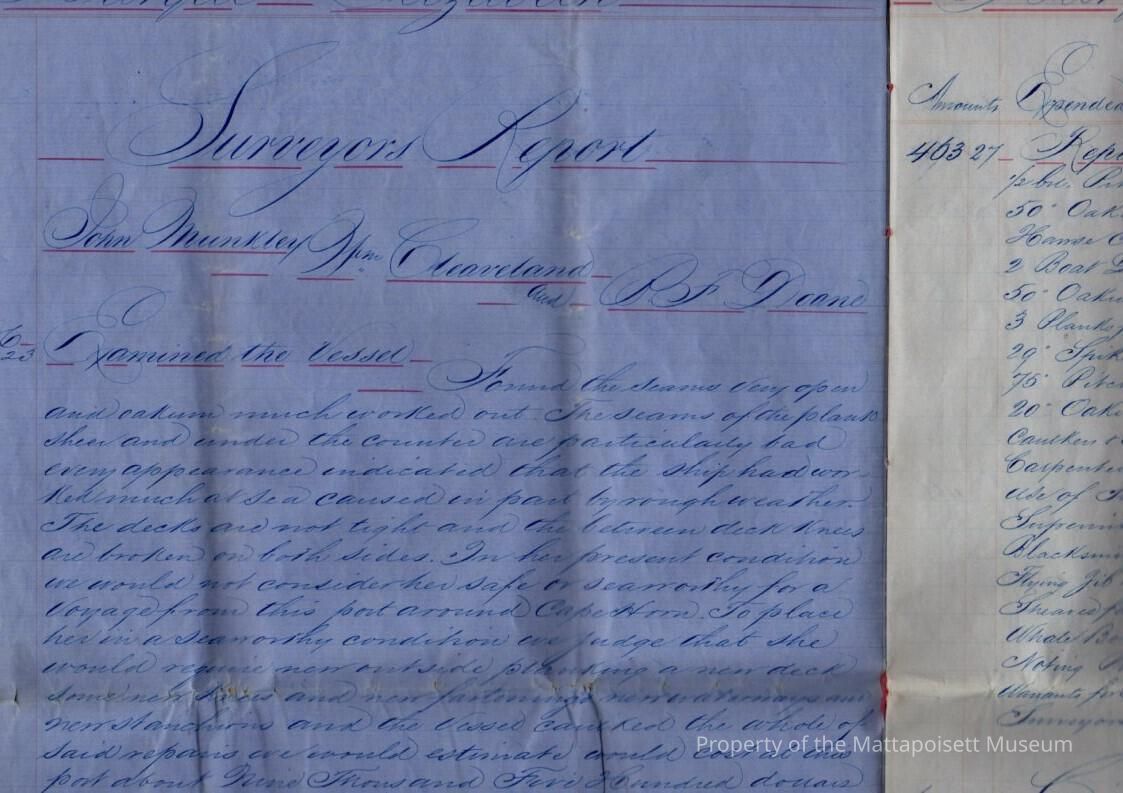 Surveyors Report
John Munkley Wm Cleaveland
and R. F. Doane
23 Examined the Vessel
Found the seams very open
and oakum much worked out. The seams of the plank
sheer and under the counter are particularly bad
every appearance indicated that the ship had wor-
ked much at sea caused in part by rough weather.
The decks are not tight and the between deck knees
are broken on both sides. In her present condition
we would not consider her safe or seaworthy for a
Voyage from this port around Cape Horn. To place
her in a seaworthy condition we judge that she
would require new outside planking a new deck
some new knees and new fastenings new waterways and
new stanchions and the Vessel caulked the whole of
said repairs we would estimate would cost at this
port about Nine Thousand Five Hundred dollars
Amounts Expended
463 27 Repa
1/2 bu. Pit
50" Oak
Hawse
2 Boat
50" Oaku
3 Planks
29" Spik
75" Pitc
20" Oak
Caulkers
Carpente
use of
Blacksm
Flying Jib
Whale Bo
Noting
Warrants for
Surveyor
Property of the Mattapoisett Museum